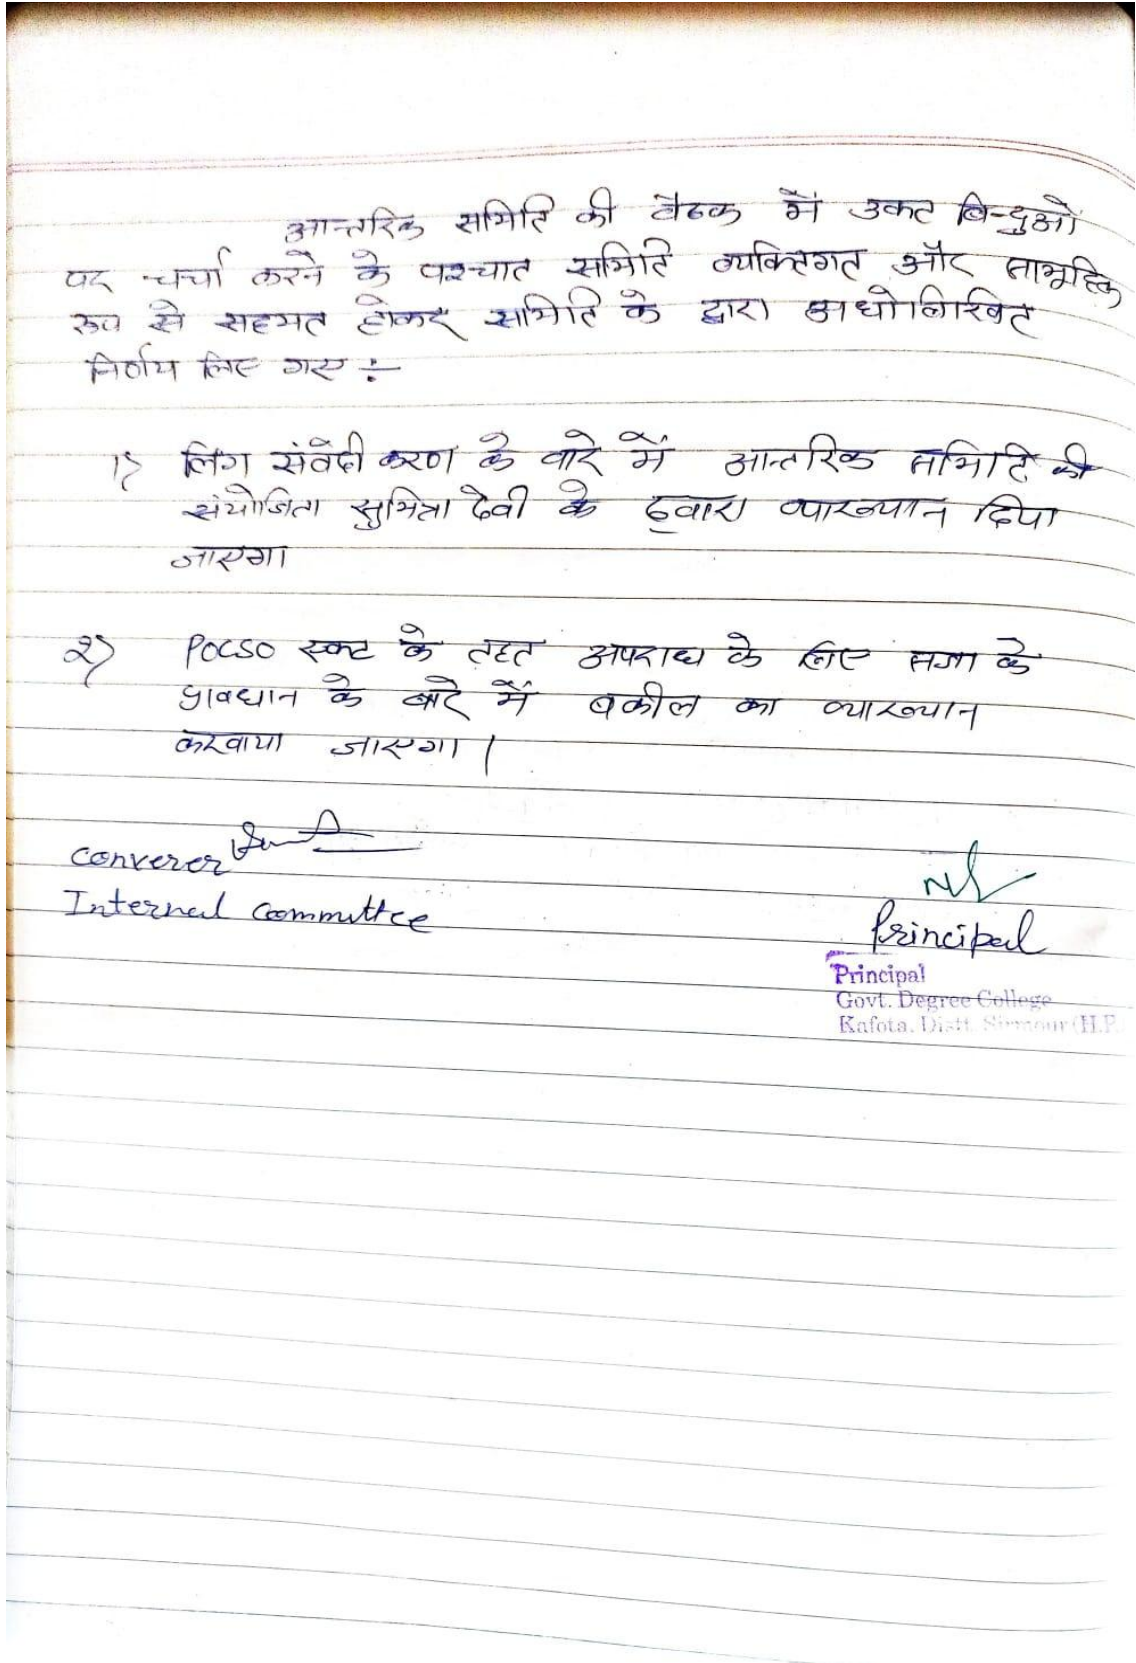 आन्तरिक समिति की वैठक में उक्त बिन्दुओं
पर चर्चा करने के पश्चात समिति व्यक्तिगत और सामूहिक
रूप से सहमत होकर समिति के द्वारा अधोलिखित
निर्णय लिए गए :-
1) लिंग संवेदी करण के वारे में आन्तरिक समिति की
संयोजिता सुमित्रा देवी के द्वारा व्याख्यान दिया
जाएगा
2) POCSO एक्ट के तहत अपराध के लिए सजा के
प्रावधान के बारे में वकील का व्याख्यान
करवाया जाएगा |
Converer
Internal Committee
Principal
Principal
Govt. Degree College
Kafota, Distt. Sirmour (H.P.